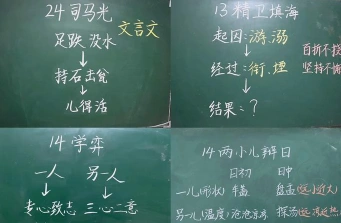 24 司马光
文言文
足跌没水
↓
持石击瓮
↓
儿得活
13 精卫填海
起因:游.溺
↓
经过:衔.堙
↓
结果:?
百折不挠
坚持不懈
14 学弈
一人 另一人
↓ ↓
专心致志 三心二意
14 两小儿辩日
日初 日中
一儿(形状) 车盖 盘盂(远小近大)
另一儿(温度) 沧沧凉凉 探汤(近热远凉)